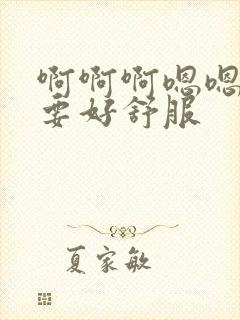 啊啊啊嗯嗯
要好舒服
夏家敏